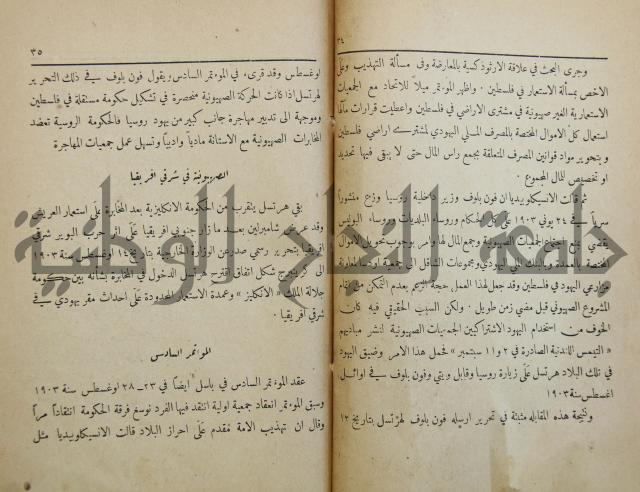 ٣٤
وجرى البحث في علاقة الارثوذكسية بالمعارضة وفى مسألة التهذيب وعلَى
الاخص بمسألة الاستعمار في فلسطين . واظهر المؤتمر ميلاً للاتحاد مع الجمعيات
الاستعمارية الغير صهيونية في مشترى الاراضي في فلسطين واعطيت قرارات مآلها
استعمال كل الاموال المختصة بالمصرف الملي اليهودي لمشترى اراضي فلسطين
وبتحوير مواد قوانين المصرف المتعلقة بجمع رأس المال حتى لا يبقى فيها تحديد
او تخصيص للمال المجموع .
ثم قالت الانسيكلوبيديا ان فون بلوف وزير داخلية روسيا وزع منشوراً
سرياً في ٢٤ يونى ١٩٠٣ على كل الحكام وروساء البلديات وروساء البوليس
يقضي بمنع اجتماع الجمعيات الصهيونية وجمع المال لها وامر بوجوب تحويل الاموال
المختصة بالعمدة وبالبنك الملي اليهودي ومجموعات الشاقل الى جمعية اودسا لمساعدة
مزارعي اليهود في فلسطين وقد جعل لهذا العمل حجة الزعم بعدم التمكن من اتمام
المشروع الصهيوني قبل مضي زمن طويل . ولكن السبب الحقيقي فيه كان
الخوف من استخدام اليهود الاشتراكيين الجمعيات الصهيونية لنشر مباديهم
« التيمس اللندنية الصادرة في ٢ و ١١ سبتمبر » فحمل هذا الامر وضيق اليهود
في تلك البلاد هرتسل علَى زيارة روسيا وقابل ويتي وفون بلوف في اوائل
اغسطس سنة ١٩٠٣
ونتيجة هذه المقابله مثبتة في تحرير ارسله فون بلوف لهرتسل بتاريخ ١٢
٣٥
اوغسطس وقد قرىء في المؤتمر السادس ويقول فون بلوف في ذلك التحرير
لهرتسل اذا كانت الحركة الصهيونية منحصرة في تشكيل حكومة مستقلة في فلسطين
وموجهة الى تدبير مهاجرة جانب كبير من يهود روسيا فالحكومة الروسية تعضد
المخابرات الصهيونية مع الاستانة مادياً وادبياً وتسهل عمل جمعيات المهاجرة
الصهيونية في شرقي افريقيا
بقي هرتسل يتقرب من الحكومة الانكليزية بعد المخابرة علَى استعمار العريش
وقد عرض شامبرلين بعد ما زار جنوبي افريقيا علَى اثر حرب البوير شرقي
افريقيا بتحرير رسمي صدر عن الوزارة الخارجية بتاريخ ١٤ اوغسطس سنة ١٩٠٣
الى كرينبرج شكل اتفاق اقترح هرتسل الدخول في المخابرة بشأنه بين حكومة
جلالة الملك « الانكليز » وعمدة الاستعمار المحدودة علَى احداث مقر يهودي في
شرقي افريقيا .
المؤتمر السادس
عقد المؤتمر السادس في باسل ايضاً في ٢٣ــ٢٨ اوغسطس سنة ١٩٠٣
وسبق المؤتمر انعقاد جمعية اولية انتقد فيها الفرد نوسغ فرقة الحكومة انتقاداً مراً
وقال ان تهذيب الامة مقدم علَى احراز البلاد قالت الانسيكلوبيديا مثل
جامعة النجاح الوطنية